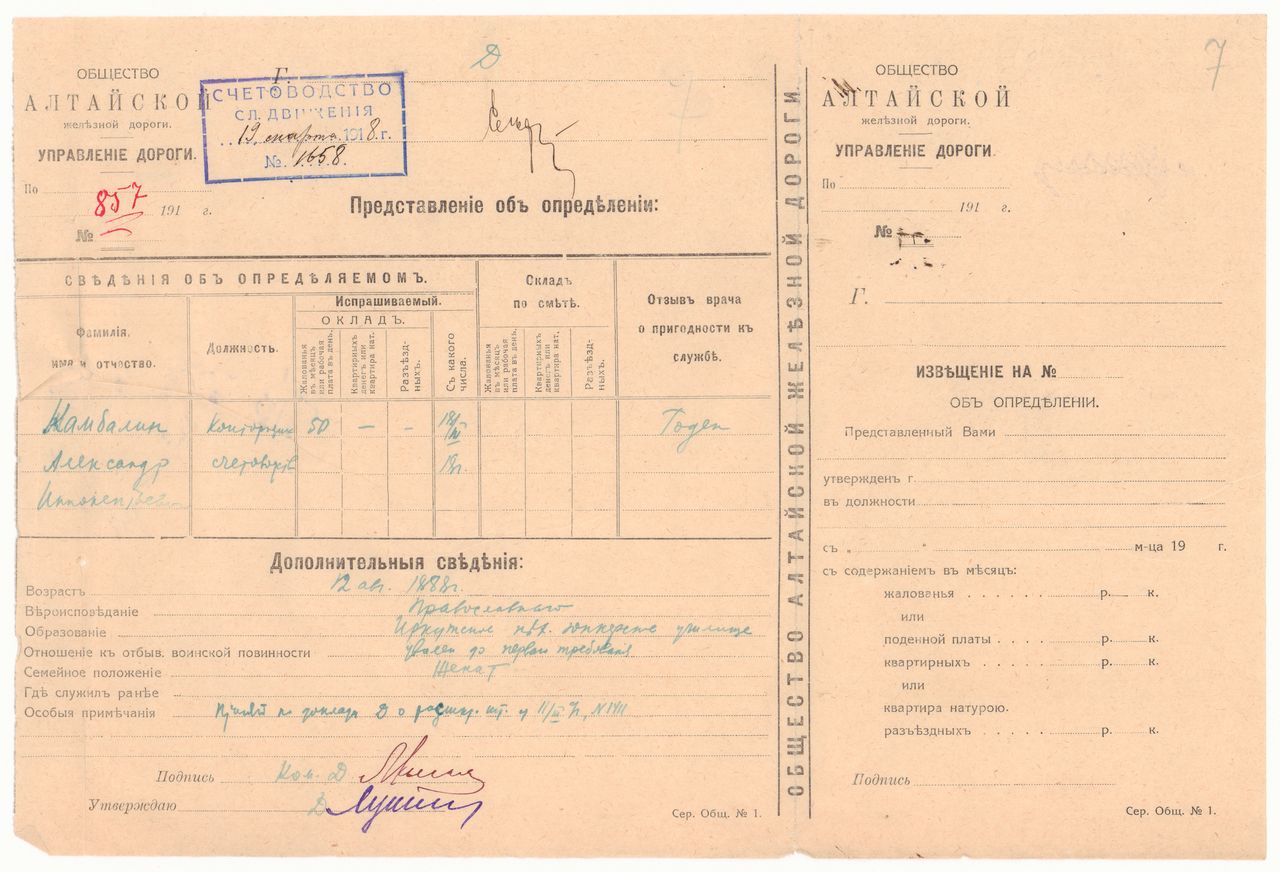 ОБЩЕСТВО
АЛТАЙСКОЙ
желѣзной дороги.
УПРАВЛЕНІЕ ДОРОГИ.
По
857
191 г.
№
Г. Д
СЧЕТОВОДСТВО
СЛ. ДВИЖЕНІЯ
19 марта 1918.г.
№ 1658.
Представленіе объ опредѣленіи:
СВѢДѢНІЯ ОБЪ ОПРЕДѢЛЯЕМОМЪ.
Складъ
по смѣтѣ.
Отзывъ врача
о пригодности къ
службѣ.
Испрашиваемый.
ОКЛАДЪ.
Фамилія,
имя и отчество.
Должность.
Жалованья
въ мѣсяцъ
или рабочая
плата въ день.
Квартирныхъ
денегъ или
квартира нат.
Разъѣзд-
ныхъ.
Съ какого
числа.
Жалованья
въ мѣсяцъ
или рабочая
плата въ день.
Квартирныхъ
денегъ или
квартира нат.
Разъѣзд-
ныхъ.
Камбалин Конторщик 50 — - 18/III Годен
Александр счетоводств 18г.
Иннокентьевич
Дополнительныя свѣдѣнія:
Возрастъ 12 авг. 1888г.
Вѣроисповѣданіе Православнаго
Образованіе Иркутское юнкерское училище
Отношеніе къ отбыв. воинской повинности уволен до перваго требованія
Семейное положеніе Женат
Гдѣ служилъ ранѣе
Особыя примѣчанія по докладу Д о 11/III №1411
Подпись Д
Утверждаю Д
Сер. Общ. № 1.
ОБЩЕСТВО АЛТАЙСКОЙ ЖЕЛѢЗНОЙ ДОРОГИ.
7
ОБЩЕСТВО
АЛТАЙСКОЙ
желѣзной дороги.
УПРАВЛЕНІЕ ДОРОГИ.
По
191 г.
№
Г.
ИЗВѢЩЕНІЕ НА №
ОБЪ ОПРЕДѢЛЕНІИ.
Представленный Вами
утвержденъ г.
въ должности
съ „ “ м-ца 19 г.
съ содержаніемъ въ мѣсяцъ:
жалованья р. к.
или
поденной платы р. к.
квартирныхъ р. к.
или
квартира натурою.
разъѣздныхъ р. к.
Подпись
Сер. Общ. № 1.